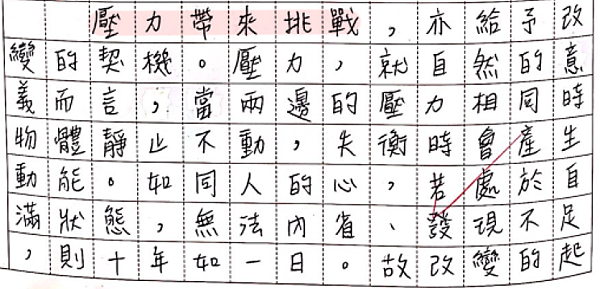 壓力帶來挑戰，亦給予改
變的契機。壓力，就自然的意
義而言，當兩邊的壓力相同時
物體靜止不動，失衡時會產生
動能。如同人的心，若處於自
滿狀態，無法內省、發現不足
，則十年如一日。故改變的起